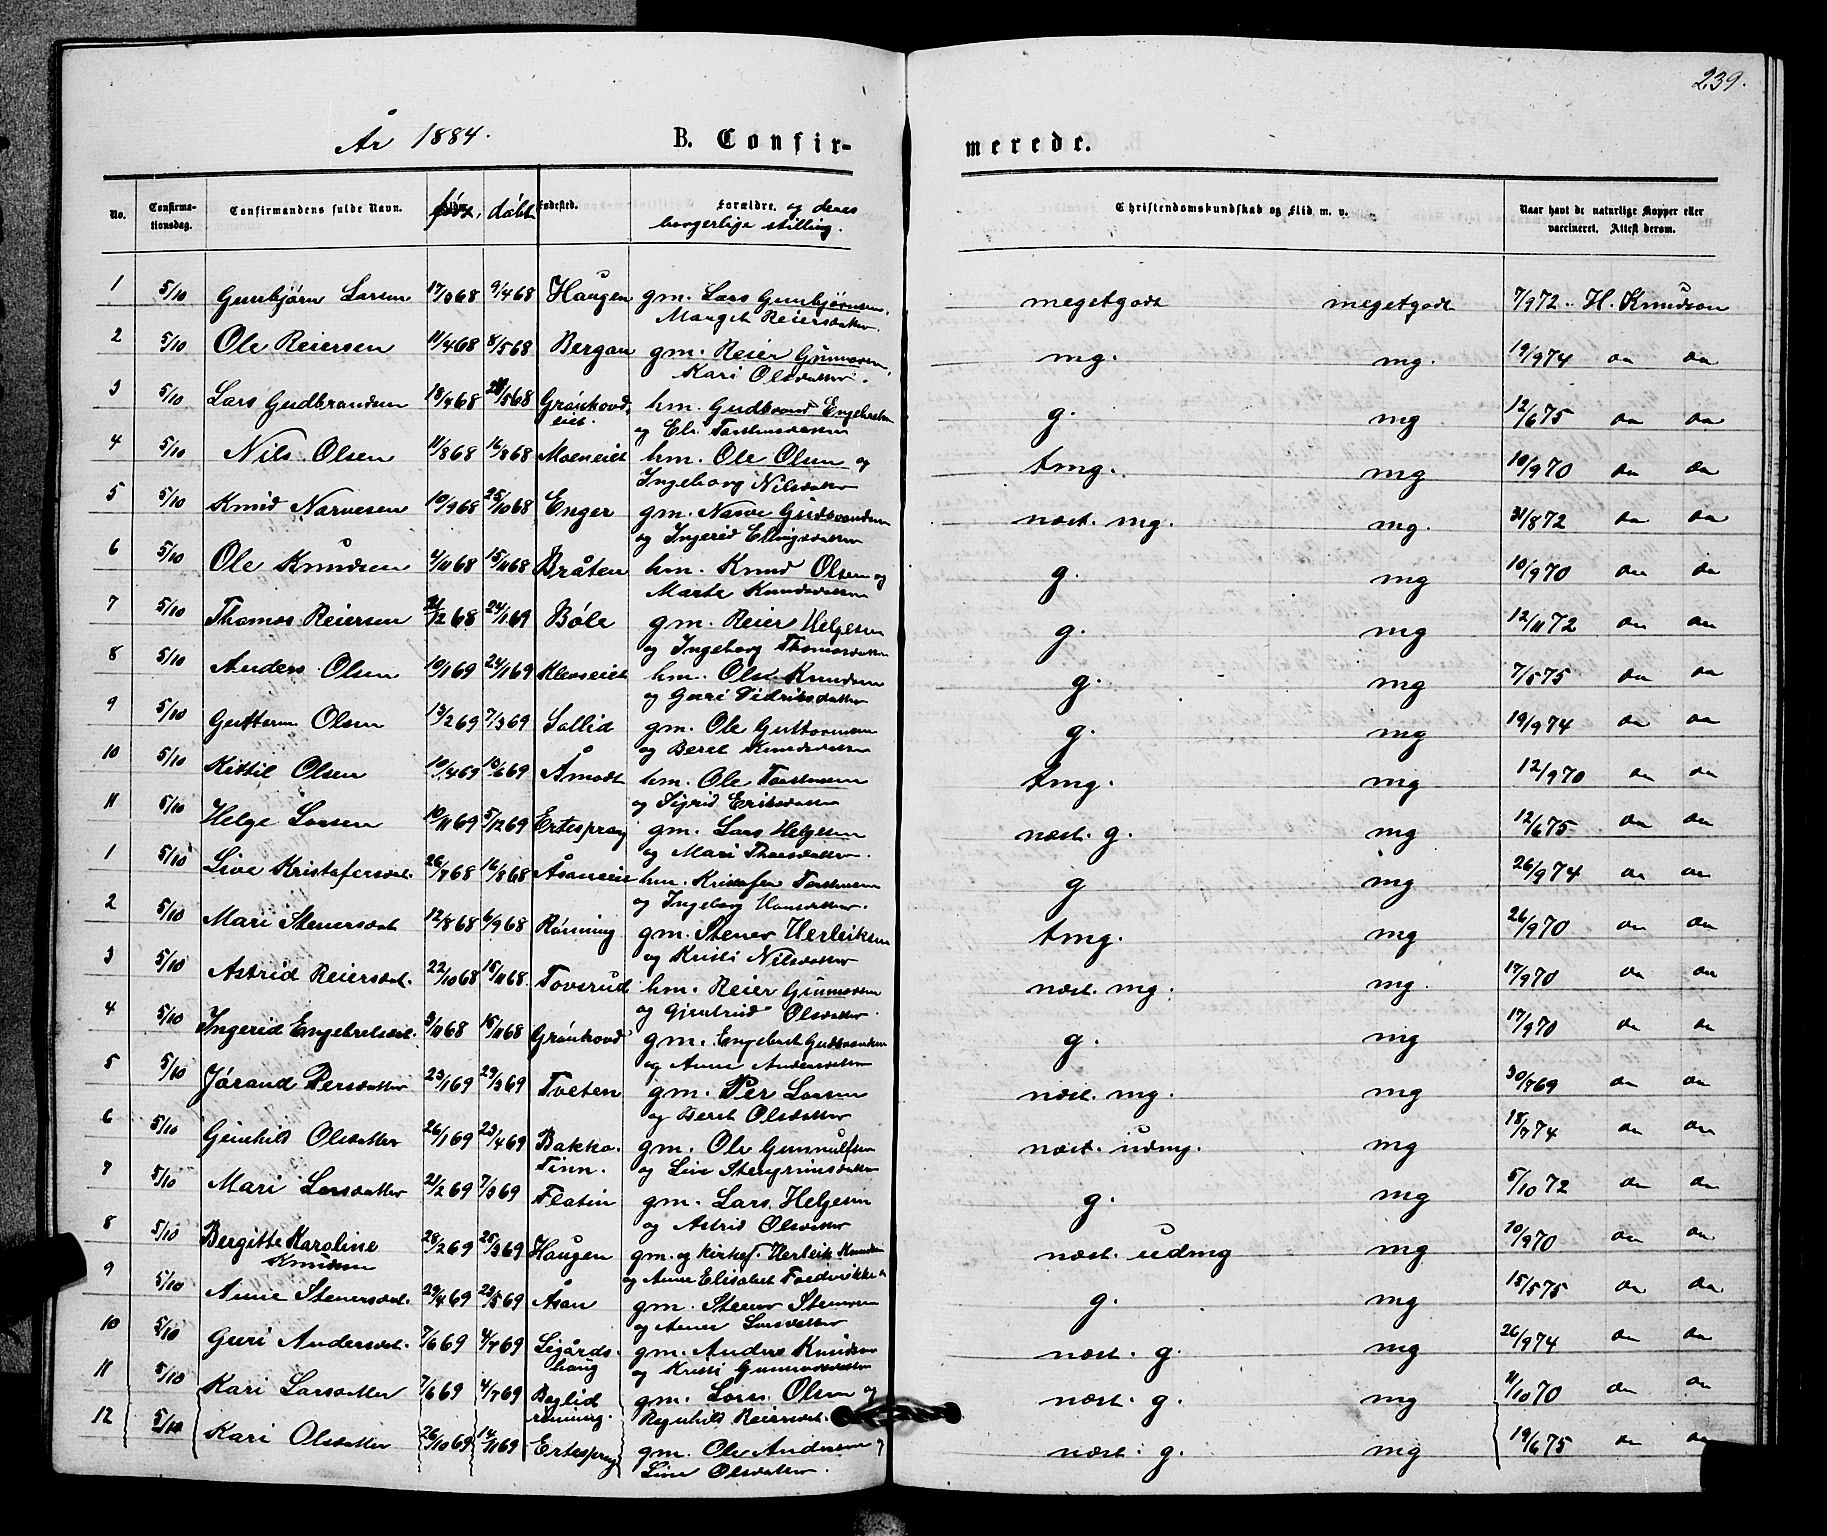 239.
År 1884.
B. Confirmerede.
No. Confirmationsdag. Confirmandens fulde Navn. født, døbt Fødested. Forældre. og deres borgerlige stilling. Christendomskundskab og Flid m. v. Naar havt de naturlige Kopper eller vaccineret. Attest derom.
1 5/10 Gunbjørn Larsen 17/3 68 9/4 68 Haugen gm. Lars Gunbjørnsen, megetgodt megetgodt 7/9 72 .. H. Knudson
Margit Reiersdatter.
2 5/10 Ole Reiersen 11/4 68 8/5 68 Bergan gm. Reier Gunnarsen, mg. mg. 19/9 74 do do
Kari Olsdatter.
3 5/10 Lars Gudbrandsen 18/4 68 /5 68 Grönhovd hm. Gudbrand Engebretsen g. mg 12/6 75 do do
eiet. og Eli Torstensdatter
4 5/10 Nils Olsen 11/8 68 16/8 68 Moeneiet hm. Ole Olsen og tmg. mg 10/9 70 do do
Ingeborg Nilsdatter
5 5/10 Knud Narvesen 10/9 68 25/10 68 Enger gm. Narve Gudbrandsen næst. mg. mg. 31/8 72 do do
og Ingerid Elingsdatter
6 5/10 Ole Knudsen 4/11 68 15/11 68 Bråten hm. Knud Olsen og g. mg 10/9 70 do do
Marte Knudsdatter
7 5/10 Thomas Reiersen 21/12 68 24/1 69 Bøle gm. Reier Helgesen g. mg 12/11 72 do do
og Ingeborg Thomasdatter
8 5/10 Anders Olsen 10/1 69 24/1 69 Kleveiet hm. Ole Knudsen g. mg 7/5 75 do do
og Guri Didriksdatter
9 5/10 Guttorm Olsen 13/2 69 7/3 69 Sollid gm. Ole Guttormsen g. mg 19/9 74 do do
og Beret Knudsdatter
10 5/10 Kittil Olsen 10/4 69 /6 69 Åmodt hm. Ole Torstensen tmg. mg 12/9 70 do do
og Sigrid Eriksdatter
11 5/10 Helge Larsen 10/11 69 5/12 69 Ertespray gm. Lars Helgesen næst. g. mg 12/6 75 do do
og Mari Thorsdatter.
1 5/10 Live Kristofersdat. 26/7 68 16/8 68 Åsaneie hm. Kristofer Torstensen g mg 26/9 74 do do
og Ingeborg Hansdatter.
2 5/10 Mari Stenersdat 12/8 68 6/9 68 Rønning gm. Stener Herleiksen tmg. mg 26/9 70 do do
og Kristi Nilsdatter
3 5/10 Astrid Reiersdat. 22/10 68 15/11 68 Tovsrud hm. Reier Gunnarsen næst. mg. mg. 17/9 70 do do
og Gjertrud Olsdatter.
4 5/10 Ingerid Engebretsdat. 3/11 68 15/11 68 Grönhovd gm. Engebret Gudbrandsen g. mg 17/9 70 do do
og Anne Andersdatter
5 5/10 Jörand Persdatter 23/1 69 29/3 69 Tveten gm. Per Larsen næst. mg. mg 30/7 69 do do
og Beret Olsdatter
6 5/10 Gunhild Olsdatter 26/1 69 23/4 69 Bakko. gm. Ole Gunnulfsen næst. udmg. mg 18/7 74 do do
Tinn. og Live Stengrimsdatter
7 5/10 Mari Larsdatter 21/2 69 7/3 69 Flatin gm. Lars Helgesen g. mg 5/10 72 do do
og Astrid Olsdatter
8 5/10 Bergitte Karoline 28/2 69 25/3 69 Haugen gm. og kirkes. Herleik Knudsen næst. udmg mg 10/9 70 do do
Knudsen og Anne Elisabet Frederikke
9 5/10 Anne Stenersdat. 29/4 69 23/5 69 Åsan gm. Stener Stenersen g. mg 15/5 75 do do
og Anne Larsdatter
10 5/10 Guri Andersdat. 7/6 69 4/7 69 Sigårds- gm. Anders Knudsen næst. g. mg 26/9 74 do do
haug og Kristi Gunnarsdatter
11 5/10 Kari Larsdatter 7/6 69 4/7 69 Beglid gm. Lars Olsen og næst. g. mg /10 70 do do
rønning. Regnhild Reiersdat.
12 5/10 Kari Olsdatter 26/10 69 14/11 69 Ertespray gm. Ole Andersen og næst. g. mg 19/6 75 do do
Live Olsdatter.